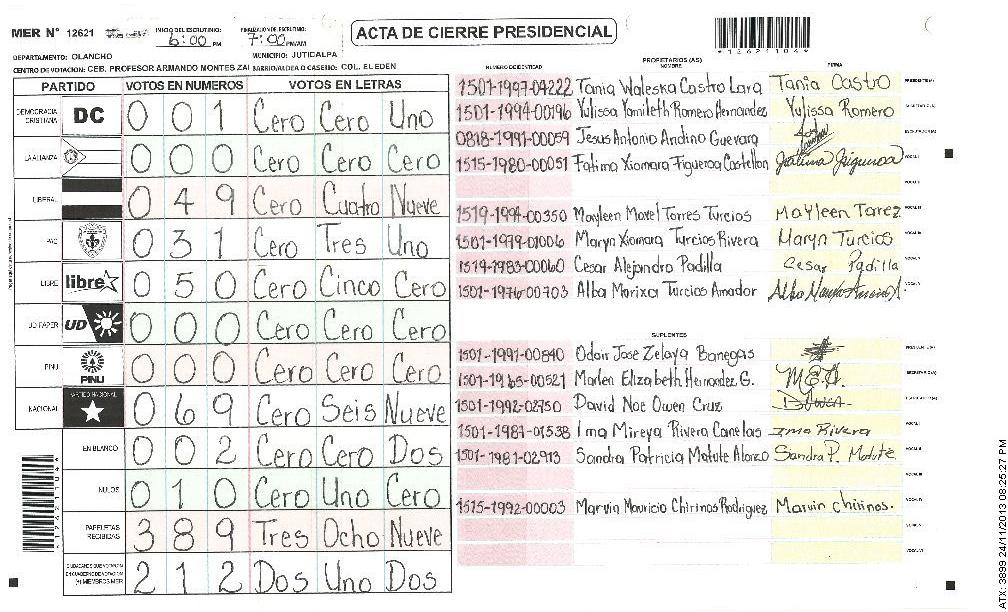 MER N° 12621
INICIO DEL ESCRUTINIO: 6:00 PM
FINALIZACION DE ESCRUTINIO: 7:00 PM/AM
ACTA DE CIERRE PRESIDENCIAL
*12621104*
DEPARTAMENTO: OLANCHO MUNICIPIO: JUTICALPA
CENTRO DE VOTACION: CEB. PROFESOR ARMANDO MONTES ZAI BARRIO/ALDEA O CASERIO: COL. EL EDEN
PARTIDO VOTOS EN NUMEROS VOTOS EN LETRAS
DEMOCRACIA CRISTIANA DC 0 0 1 Cero Cero Uno
LA ALIANZA 0 0 0 Cero Cero Cero
LIBERAL 0 4 9 Cero Cuatro Nueve
PAC 0 3 1 Cero Tres Uno
LIBRE libre 0 5 0 Cero Cinco Cero
UD-FAPER UD 0 0 0 Cero Cero Cero
PINU PINU 0 0 0 Cero Cero Cero
NACIONAL PARTIDO NACIONAL 0 6 9 Cero Seis Nueve
EN BLANCO 0 0 2 Cero Cero Dos
NULOS 0 1 0 Cero Uno Cero
PAPELETAS RECIBIDAS 3 8 9 Tres Ocho Nueve
CIUDADANOS QUE VOTARON EN CUADERNO DE VOTACION (+) MIEMBROS MER 2 1 2 Dos Uno Dos
PROPIETARIOS (AS)
NUMERO DE IDENTIDAD NOMBRE FIRMA
1501-1997-04222 Tania Waleska Castro Lara Tania Castro PRESIDENTE(A)
1501-1994-00196 Yulissa Yamileth Romero Hernandez Yulissa Romero SECRETARIO(A)
0818-1991-00059 Jesus Antonio Andino Guevara ESCRUTADOR(A)
1515-1980-00051 Fatima Xiomara Figueroa Castellon Fatima Figueroa VOCAL I
VOCAL II
1519-1994-00350 Mayleen Maxel Torres Turcios Mayleen Torrez VOCAL III
1501-1979-01006 Maryn Xiomara Turcios Rivera Maryn Turcios
1519-1983-00060 Cesar Alejandro Padilla Cesar Padilla
1501-1976-00703 Alba Marixa Turcios Amador
SUPLENTES
1501-1991-00840 Odair Jose Zelaya Banegas PRESIDENTE(A)
1501-1965-00521 Marlen Elizabeth Hernandez G. M.E.H. SECRETARIO(A)
1501-1992-02750 David Noe Owen Cruz D. Owen ESCRUTADOR(A)
1501-1981-01538 Irma Mireya Rivera Canelas Irma Rivera VOCAL I
1501-1981-02913 Sandra Patricia Matute Alonzo Sandra P. Matute VOCAL II
VOCAL III
1515-1992-00003 Marvin Mauricio Chirinos Rodriguez Marvin chirinos. VOCAL IV
VOCAL V
VOCAL VI
*12621104*
ATX: 3899 24/11/2013 08:25:27 PM